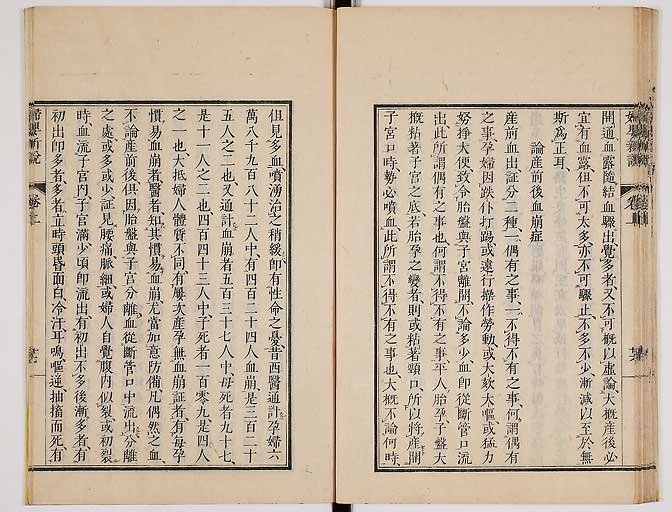 開通血露隨結血驟出覺多者又不可概以虛論大概產後必
宜有血露但不可太多亦不可驟止不多不少漸減以至於無
斯爲正耳
論產前後血崩症
產前血出証分二種一偶有之事一不得不有之事何謂偶有
之事孕婦因跌仆打踢或遠行操作勞動或大欬大嘔或猛力
努掙大便致令胎盤與子宮離開不論多少血卽從斷管口流
出此所謂偶有之事也何謂不得不有之事平人胎孕子盤大
概粘著子宮之底若胎孕之變者則或粘著頸口所以將產開
子宮口時勢必噴血此所謂不得不有之事也大概不論何時
但見多血噴湧治之稍緩卽有性命之憂昔西醫通計孕婦六
萬八千九百八十二人中有四百二十四人血崩是三百二十
五人之二也又通計血崩者五百三十七人中母死者九十七
是十一人之二也四百四十三人中子死者一百零九是四人
之一也大抵婦人體質不同有屢次產孕無血崩証者有每孕
慣易血崩者醫者知其慣易血崩尤當加意防備凡偶然之血
不論產前後俱因胎盤與子宮分離血從斷管口中流出分離
之處或多或少証見腰痛脈細或婦人自覺腹內似裂或初裂
時血流子宮內子宮滿少頃卽流出有初出不多後漸多者有
初出卽多者多者立時頭昏面白冷汗耳鳴嘔逆抽搐而死有
婦嬰新說